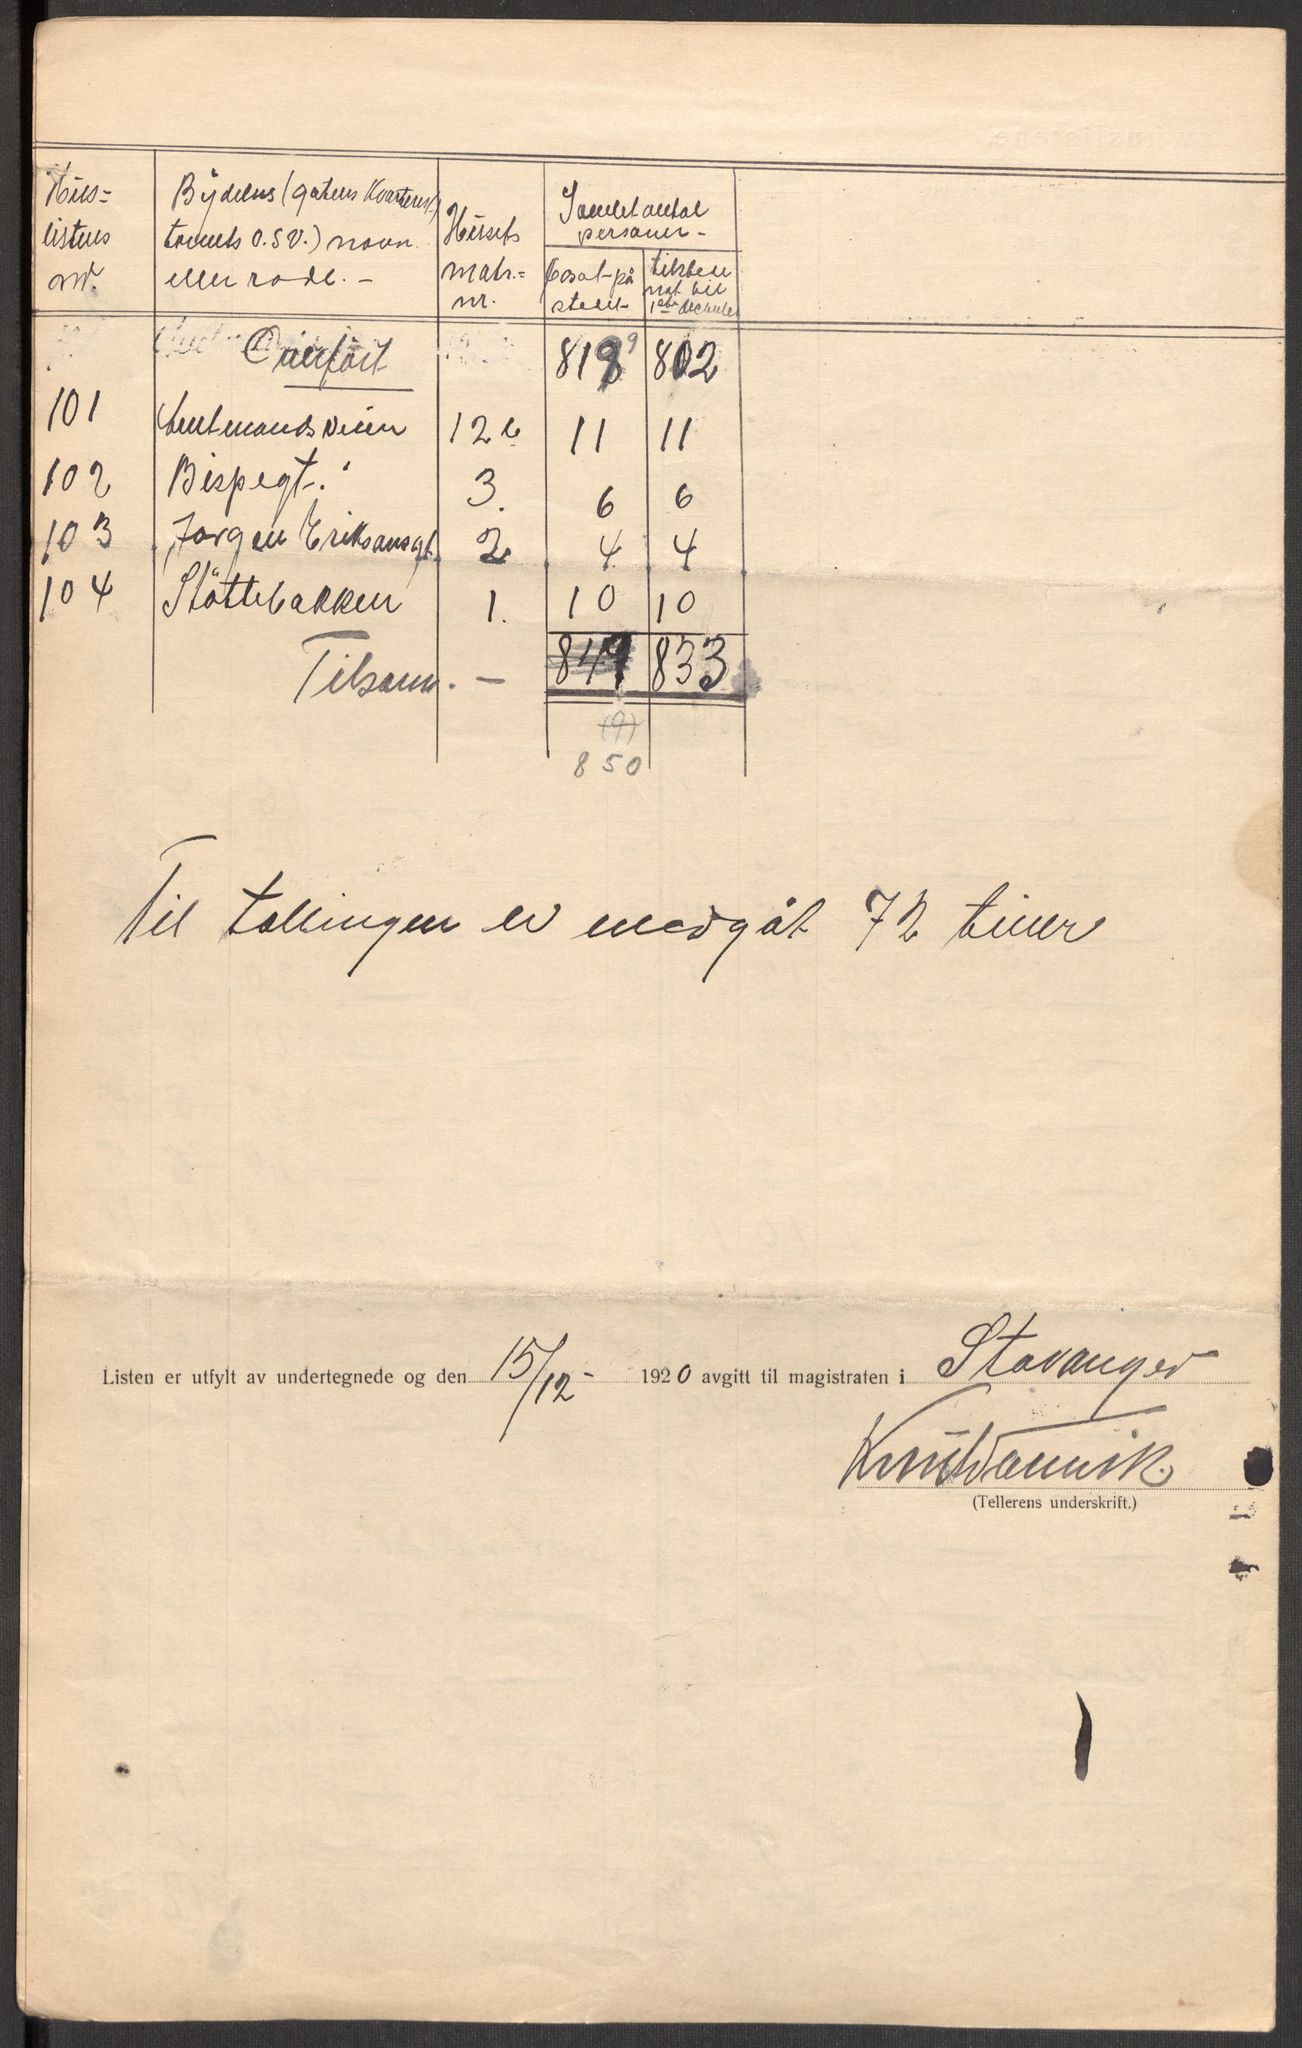 Hus- Bydelens (gatens kvarterets
listens tomts o.s.v.) navn Husets Samlet antal
nr. eller rode. - matr.- personer -
nr. bosat på stedet tilstede nat til 1ste december
Overført 818 9 802
101 Amtmandsveien 12 11 11
102 Bispegt. 3. 6 6
103 Jørgen Eriksønsgt. 2 4 4
104 Støttebakken 1. 10 10
Tilsam. - 849 833
(9)
850
Til tellingen er medgåt 72 timer
Listen er utfylt av undertegnede og den 15/12- 1920 avgitt til magistraten i Stavanger
Knut
(Tellerens underskrift.)